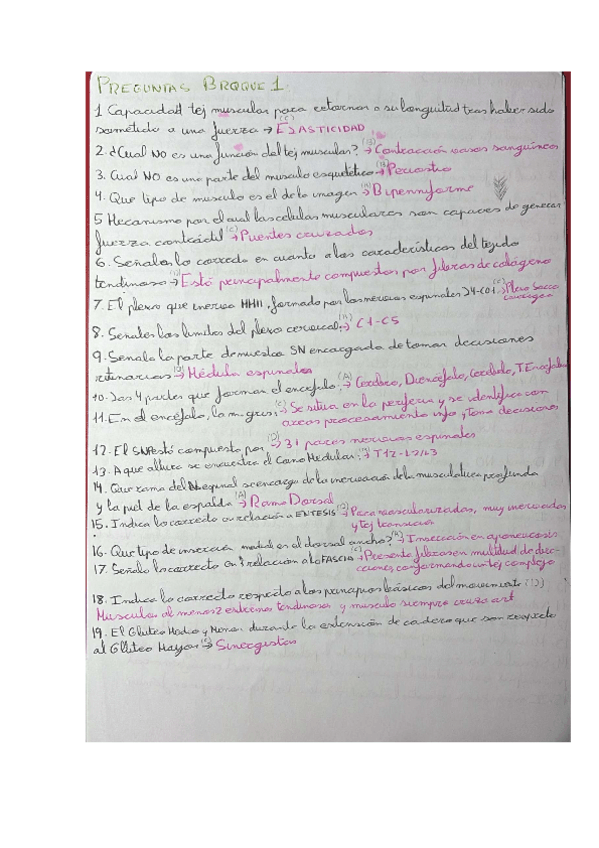 PREGUNTAS BROQUE 1.
1 Capacidad tej muscular para retornar a su longuitud tras haber sido
sometido a una fuerza → (C) ELASTICIDAD
2. ¿Cual NO es una función del tej muscular? (B) → Contracción vasos sanguíneos
3. Cual NO es una parte del musculo esquelético → Periostio
4. Que tipo de musculo es el de la imagen → Bipenniforme
5 Mecanismo por el cual las células musculares son capaces de generar
fuerza contráctil (C) → Puentes cruzados
6. Señala lo correcto en cuanto a las características del tejido
tendinoso → Está principalmente compuestos por fibras de colágeno
7. El plexo que inerva MMII, formado por los nervios espinales (C) → Plexo Sacro
coxígeo
8. Señala los limites del plexo cervical → C1-C5
9. Señala la parte de nuestro SN encargada de tomar decisiones
rutinarias → Médula espinal
10. Las 4 partes que forman el encéfalo (A) → Cerebro, Diencéfalo, Cerebelo, T Encéfalo
11. En el encéfalo, la m. gris (C) → Se situa en la periferia y se identifica con
areas procesamiento info y toma decisiones
12. El SNP está compuesto por (D) → 31 pares nerviosos espinales
13. A que altura se encuentra el Cono Medular → T12-L2/L3
14. Que rama del N. espinal se encarga de la inervación de la musculatura profunda
y la piel de la espalda (A) → Rama Dorsal
15. Indica lo correcto en relación a ENTESIS → Poco vascularizadas, muy inervadas
y tej transición
16. Que tipo de inserción medial es el dorsal ancho? → Inserción en aponeurosis
17. Señala lo correcto en relación a la FASCIA (C) → Presenta fibras en multitud de direc-
ciones, conformando un tej complejo
18. Indica lo correcto respecto a los principios básicos del movimiento (D)
Musculos al menos 2 extremos tendinosos y musculo siempre cruza art
19. El Glúteo Medio y Menor durante la extensión de cadera que son respecto
al Glúteo Mayor → Sinergistas